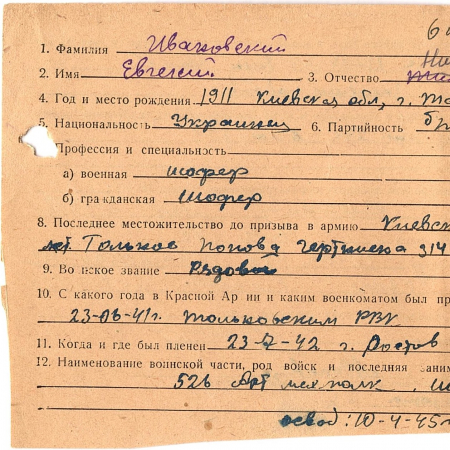 1. Фамилия Иваковский
2. Имя Евгений 3. Отчество
4. Год и место рождения 1911 Киевская обл, г.
5. Национальность Украинец 6. Партийность
Профессия и специальность
а) военная шофер
б) гражданская шофер
8. Последнее местожительство до призыва в армию Киевск
Попова 314
9. Во нское звание Рядовой
10. С какого года в Красной Ар ии и каким военкоматом был пр
23-06-41г. РВК
11. Когда и где был пленен 42 г. Ростов
12. Наименование воинской части, род войск и последняя заним
526 Арт мехполк
освоб: 10-4-45г